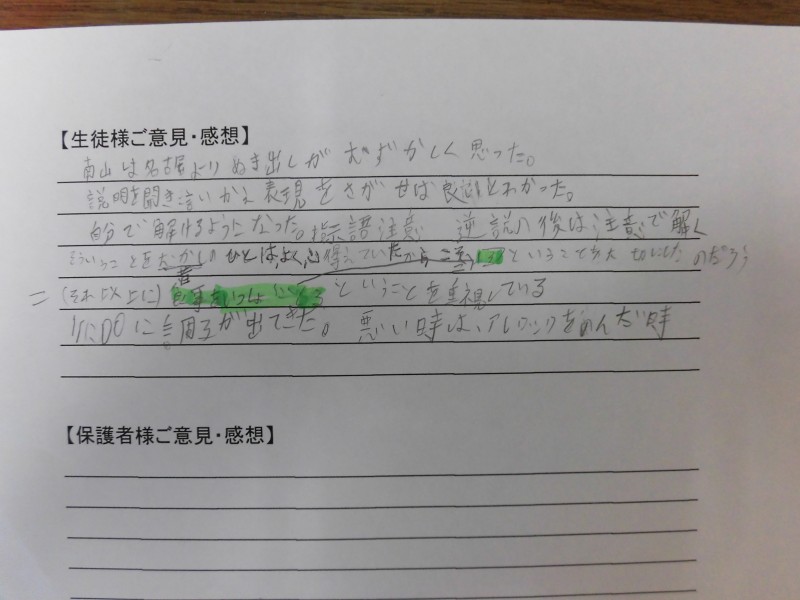 【生徒様ご意見・感想】
南山は名古屋よりぬき出しがむずかしく思った。
説明を聞き言いかえ表現をさがせば良いとわかった。
自分で解けるようになった。指示語注意 逆説の後は注意で解く
そういうことをむかしのひとはよく心得ていたからこそ、ということを大切にしたのだろう
＝(それ以上に)食事をいっしょにするということを重視している
に調子が出てきた。悪い時は、をのんだ時
【保護者様ご意見・感想】